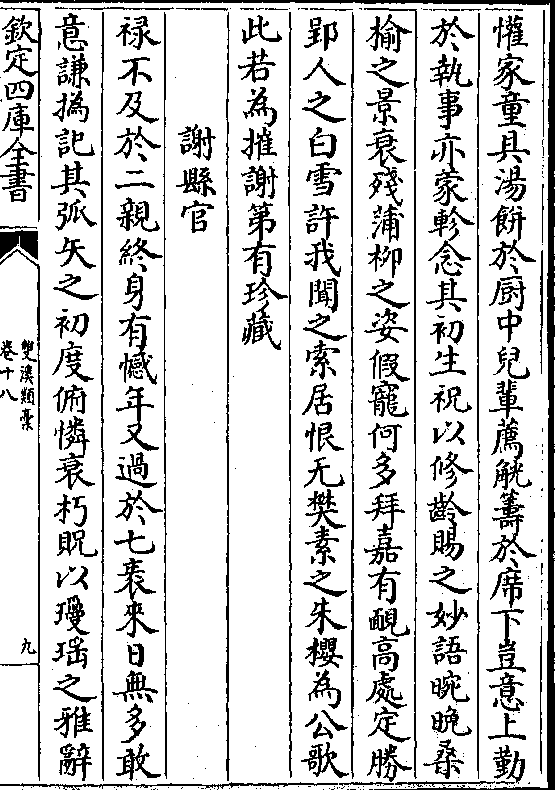 懽家童具湯餅於厨中兒輩薦觥籌於席下豈意上勤
於執事亦蒙軫念其初生祝以修齡賜之妙語晼晚桑
榆之景衰殘蒲柳之姿假寵何多拜嘉有靦高處定勝
郢人之白雪許我聞之索居恨无樊素之朱櫻為公歌
此若為摧謝第有珍藏
謝縣官
禄不及於二親終身有憾年又過於七袠來日無多敢
意謙撝記其弧矢之初度俯憐衰朽貺以瓊瑶之雅辭
欽定四庫全書
雙溪類稾
卷十八
九